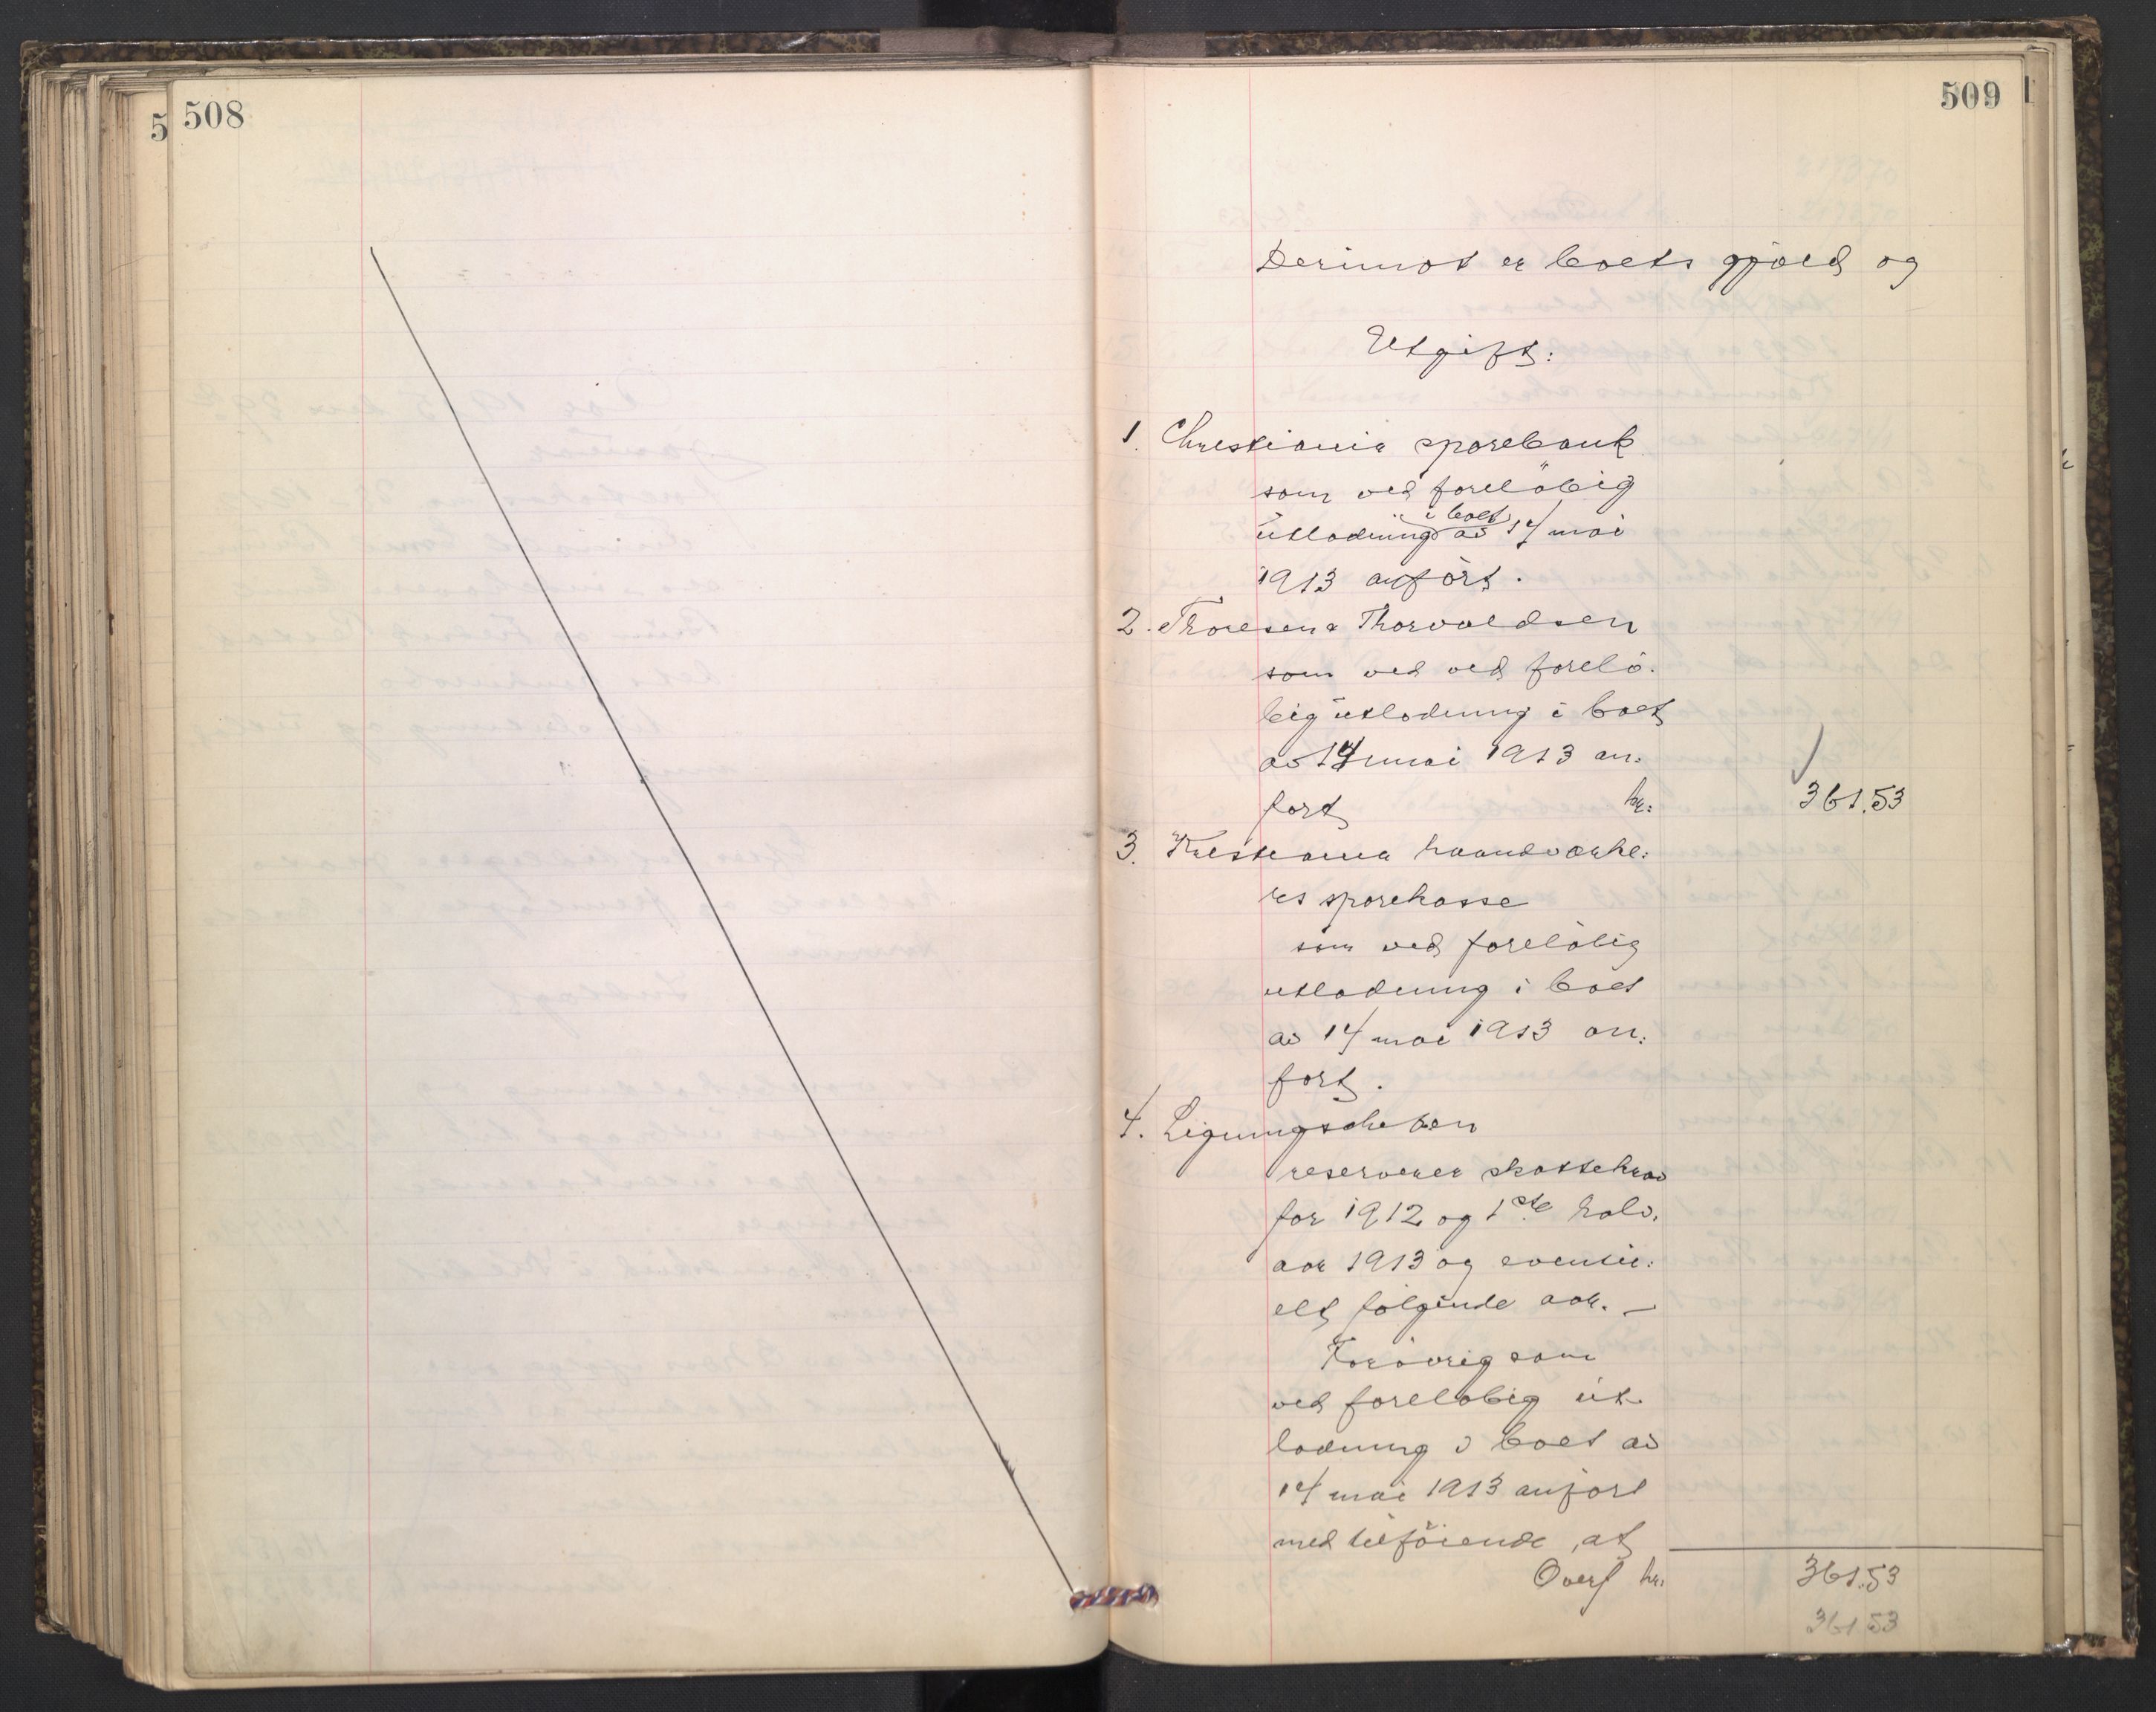 508
509
Derimot er boets gjæld og
Utgift:
1. Christiania sparebank
som ved foreløbig
utlodning i boet av 14 mai
1913 anført.
2. Thoresen & Thorvaldsen
som ved ved forelø-
big utlodning i boet
av 14 mai 1913 an-
ført kr: 361.53
3. Kristiania haandværke-
res sparekasse
som ved foreløbig
utlodning i boet
av 14 mai 1913 an-
ført.
4. Ligningschefen
reserverer skattekrav
for 1912 og 1ste halv-
aar 1913 og eventu-
elt følgende aar. —
Forøvrig som
ved foreløbig ut-
lodning i boet av
14 mai 1913 anført
med tilføiende, at
Overf kr: 361.53
361.53